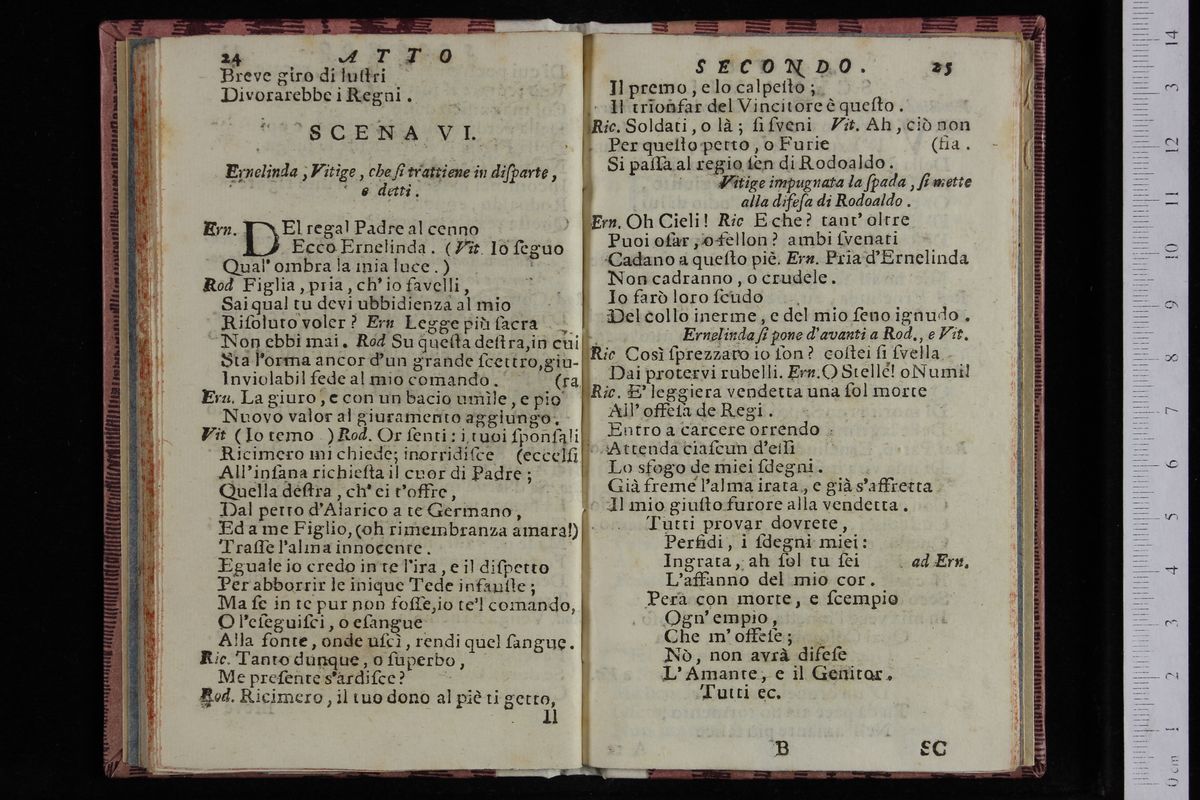 24 ATTO
Breve giro di luſtri
Divorarebbe i Regni.
SCENA VI.
Ernelinda, Vitige, che ſi trattiene in diſparte,
e detti.
Ern. DEl regal Padre al cenno
Ecco Ernelinda. (Vit Io ſeguo
Qual' ombra la mia luce.)
Rod Figlia, pria, ch' io favelli,
Sai qual tu devi ubbidienza al mio
Riſoluto voler? Ern Legge più ſacra
Non ebbi mai. Rod Su queſta deſtra, in cui
Sta l'orma ancor d'un grande ſcettro, giu-
Inviolabil fede al mio comando. (ra
Ern. La giuro, e con un bacio umìle, e pio
Nuovo valor al giuramento aggiungo.
Vit (Io temo ) Rod. Or ſenti: i tuoi ſponſali
Ricimero mi chiede; inorridiſce (eccelſi
All'inſana richieſta il cuor di Padre;
Quella deſtra, ch' ei t'offre,
Dal petto d'Alarico a te Germano,
Ed a me Figlio, (oh rimembranza amara!)
Traſſe l'alma innocente.
Eguale io credo in te l'ira, e il diſpetto
Per abborrir le inique Tede infauſte;
Ma ſe in te pur non foſſe, io te'l comando,
O l'eſeguiſci, o eſangue
Alla fonte, onde uſcì, rendi quel ſangue.
Ric. Tanto dunque, o ſuperbo,
Me preſente s'ardiſce?
Rod. Ricimero, il tuo dono al piè ti getto,
Il
SECONDO. 25
Il premo, e lo calpeſto;
Il trionfar del Vincitore è queſto.
Ric. Soldati, o là; ſi ſveni Vit. Ah, ciò non
Per queſto petto, o Furie (ſia.
Si paſſa al regio ſen di Rodoaldo.
Vitige impugnata la ſpada, ſi mette
alla difeſa di Rodoaldo.
Ern. Oh Cieli! Ric E che? tant' oltre
Puoi oſar, o fellon? ambi ſvenati
Cadano a queſto piè. Ern. Pria d'Ernelinda
Non cadranno, o crudele.
Io farò loro ſcudo
Del collo inerme, e del mio ſeno ignudo.
Ernelinda ſi pone d'avanti a Rod., e Vit.
Ric Così ſprezzato io ſon? coſtei ſi ſvella
Dai protervi rubelli. Ern. O Stelle! o Numi!
Ric. E' leggiera vendetta una ſol morte
All' offeſa de Regi.
Entro a carcere orrendo
Attenda ciaſcun d'eſſi
Lo sfogo de miei ſdegni.
Già freme l'alma irata, e già s'affretta
Il mio giuſto furore alla vendetta.
Tutti provar dovrete,
Perfidi, i ſdegni miei:
Ingrata, ah ſol tu ſei ad Ern.
L'affanno del mio cor.
Pera con morte, e ſcempio
Ogn' empio,
Che m' offeſe;
Nò, non avrà difeſe
L' Amante, e il Genitor.
Tutti ec.
B SC
0 cm 1 2 3 4 5 6 7 8 9 10 11 12 13 14